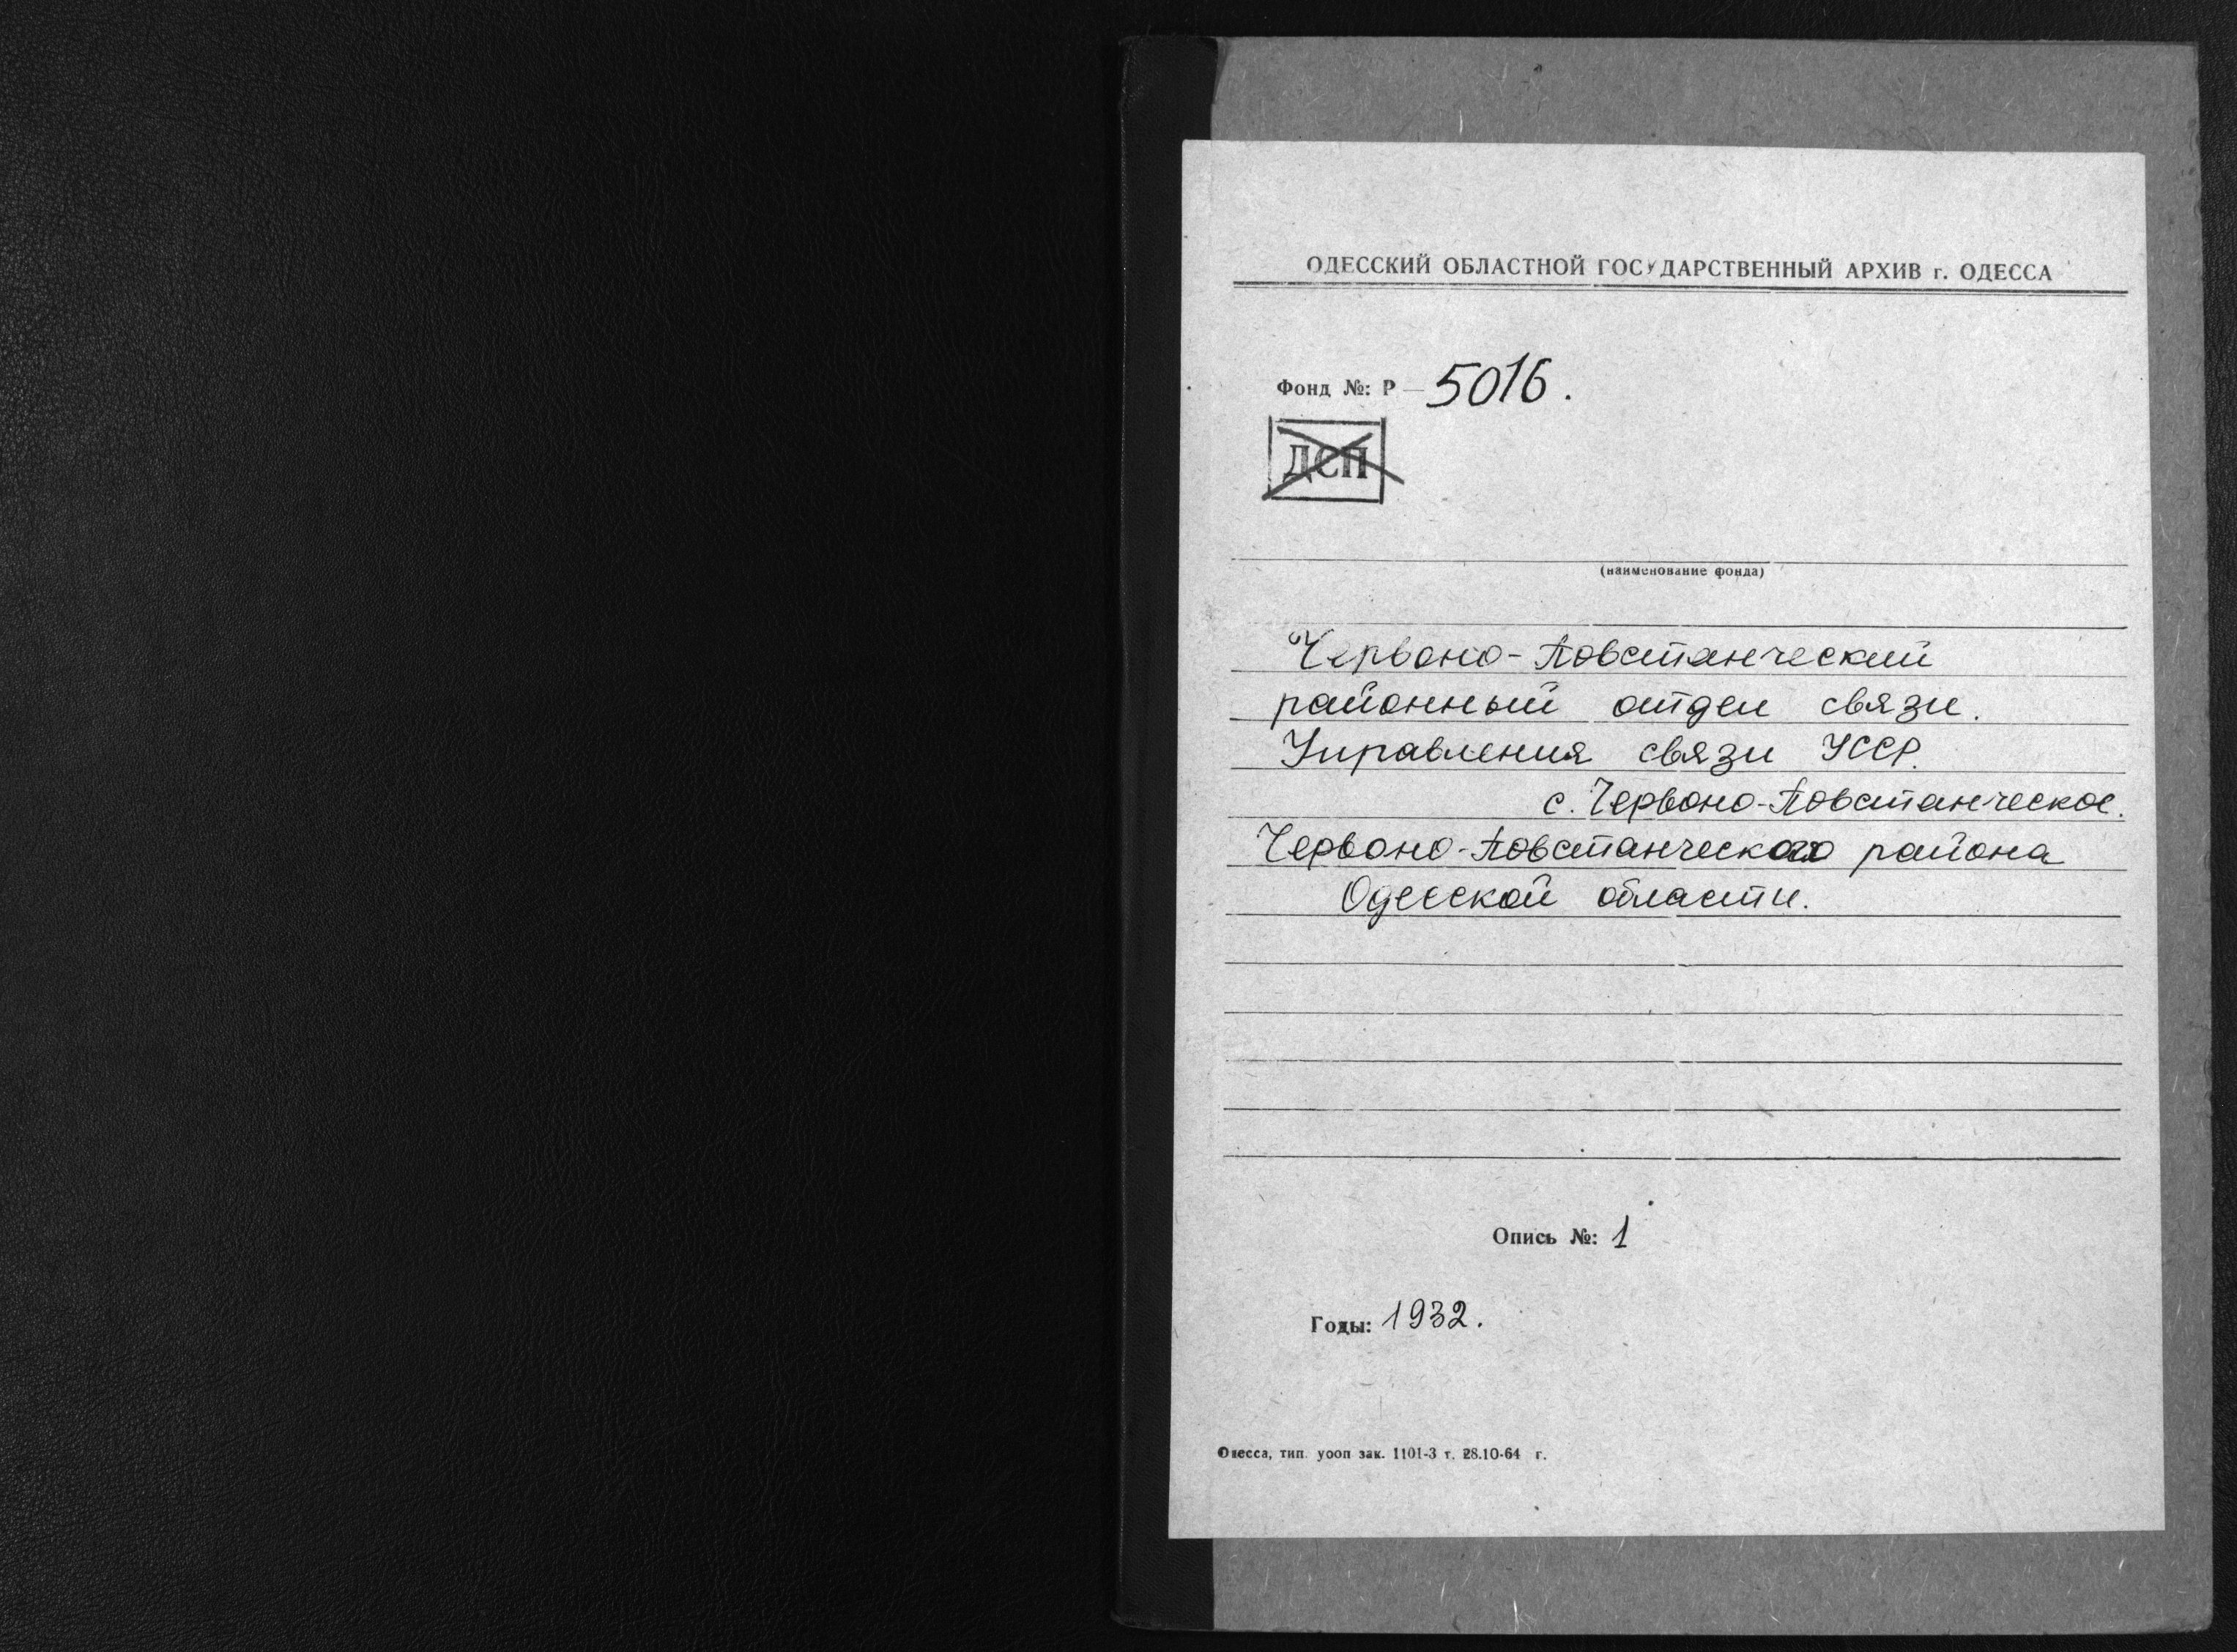 ОДЕССКИЙ ОБЛАСТНОЙ ГОСУДАРСТВЕННЫЙ АРХИВ г. ОДЕССА
Фонд №: Р — 5016.
ДСП
(наименование фонда)
"Червоно-Повстанческий
районный отдел связи.
Управления связи УССР.
с. Червоно-Повстанческое.
Червоно-Повстанческого района
Одесской области.
Опись №: 1
Годы: 1932.
Одесса, тип. уооп зак. 1101-3 т. 28.10-64 г.